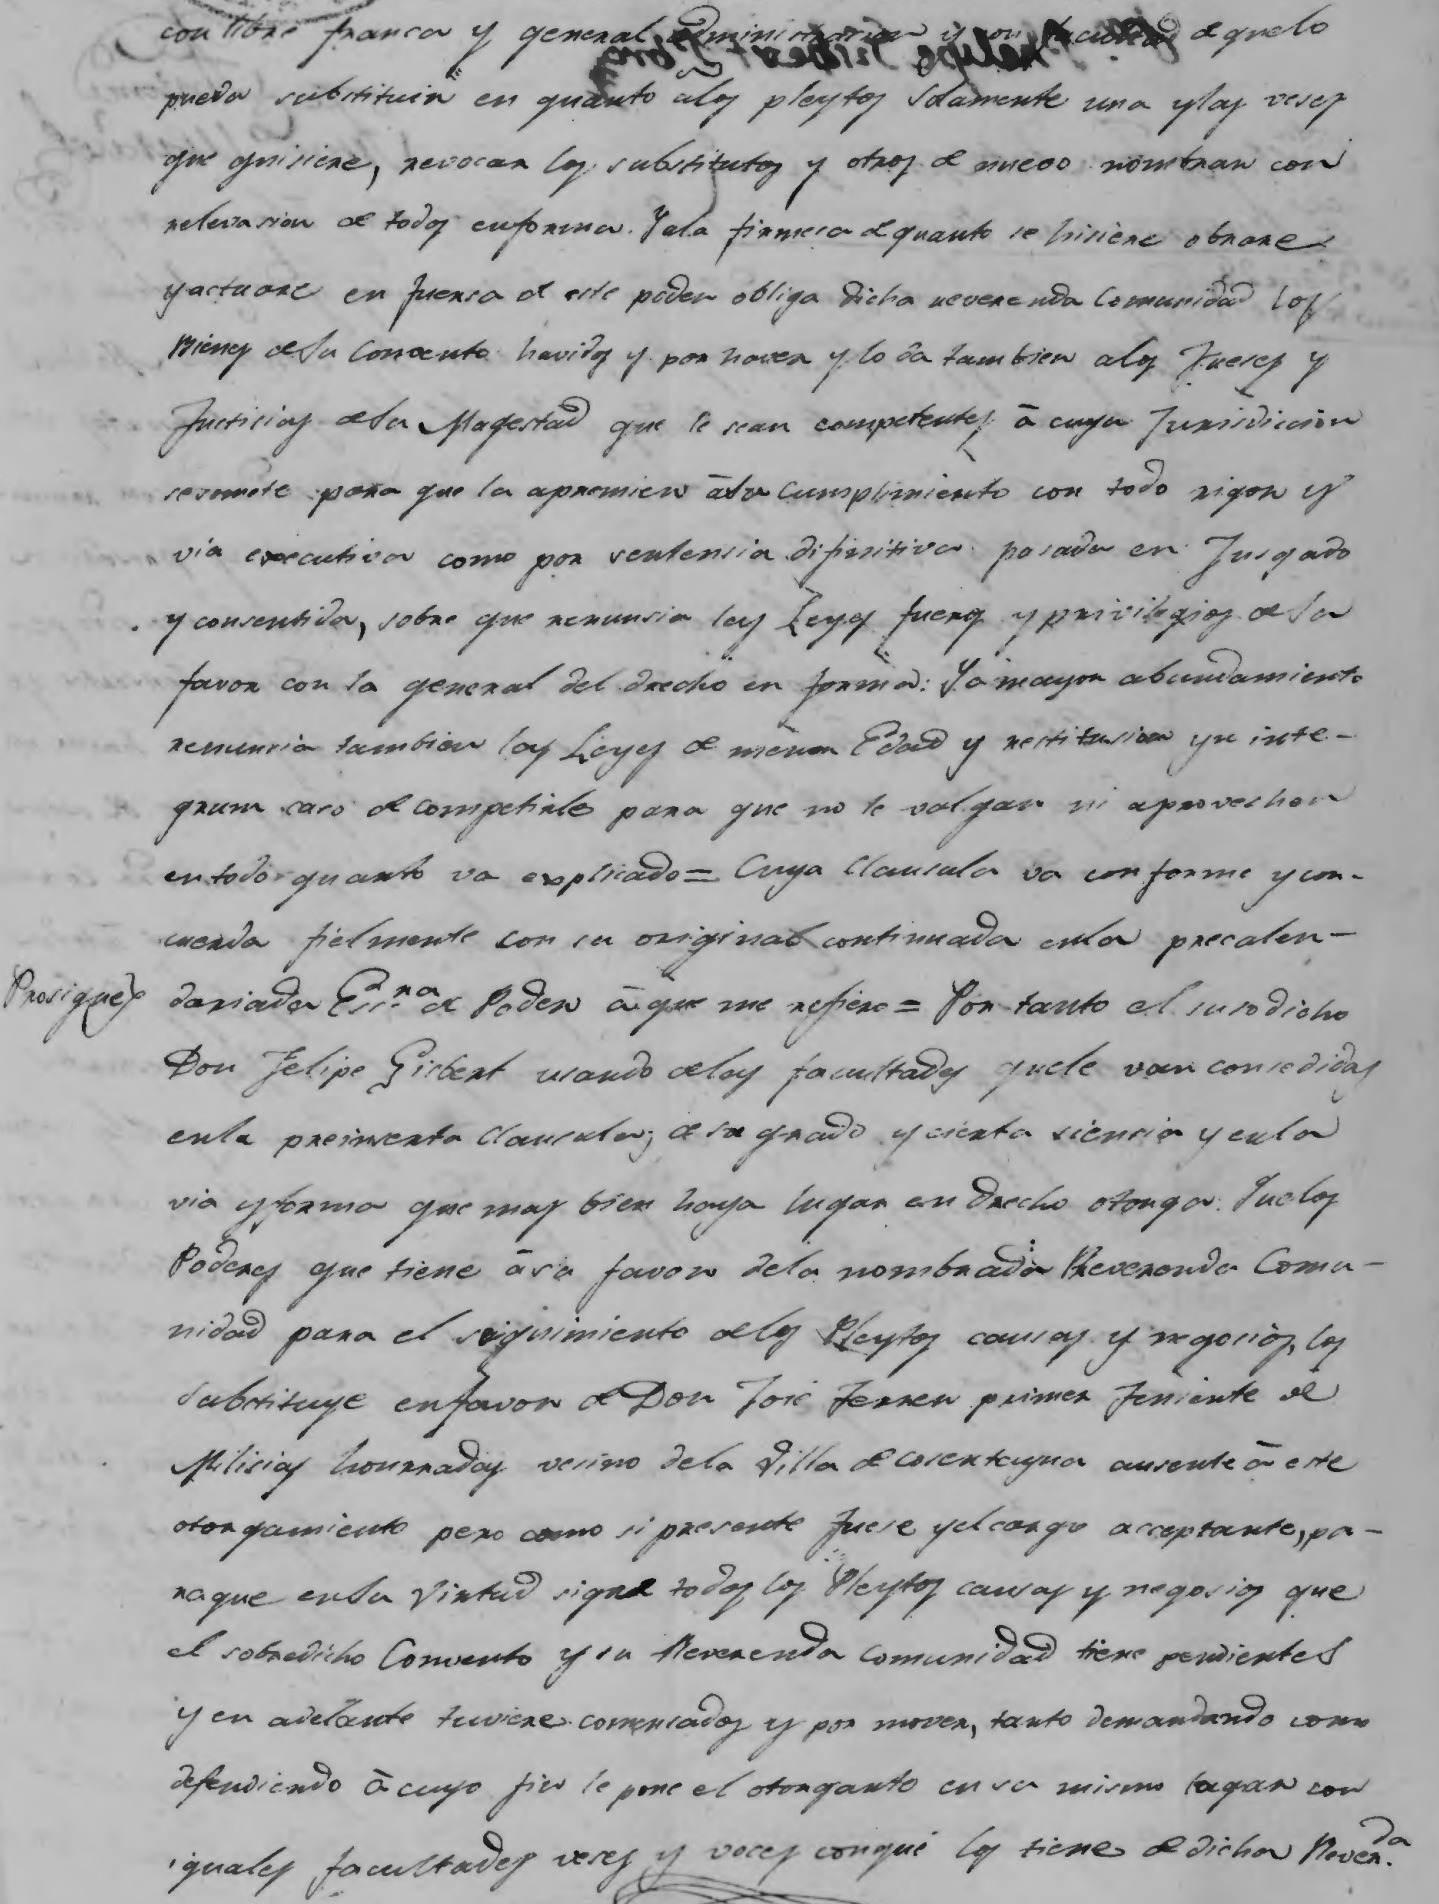 con libre franca y general administracion y con facultad de quelo
pueda substituir en quanto alos pleytos solamente una ylas veses
que quisiere, revocar los substitutos y otros de nuevo nombrar con
relevasion de todos enforma. Yala firmesa de quanto se hisiere obrare
yactuare en fuersa de este poder obliga dicha reverenda Comunidad los
Bienes desu Convento havidos y por haver y lo da tambien alos Jueses y
Justicias desu Magestad que le sean competentes, â cuya Jurisdiccion
sesomete para que la apremien âsu cumplimiento con todo rigor y
via executiva como por sentensia difinitiva pasada en Jusgado
y consentida, sobre que renunsia las Leyes fueros y privilegios de su
favor con la general del drecho en forma: Yâ mayor abundamiento
renunsia tambien las Leyes de menor Edad y restitusion yn inte-
grum caso de competirle para que no le valgan ni aprovechen
entodo quanto va explicado = Cuya Clausula va conforme y con-
cuerda fielmente con su original continuada enla precalen-
Prosigue dariada Esc.ra de Poder â que me refiero = Por tanto el susodicho
Don Felipe Gisbert usando delas facultades quele van consedidas
enla preinserta Clausula; de su grado y cierta siencia y enla
via yforma que mas bien haya lugar en drecho otorga: Quelos
Poderes que tiene âsu favor dela nombrada Reverenda Comu-
nidad para el siguimiento delos Pleytos causas y negosios, los
substituye enfavor de Don José Ferrer primer Teniente de
Milisias honrradas vesino dela Villa de Cosentayna ausente â este
otorgamiento pero como si presente fuese yelcargo acceptante, pa-
raque ensu Virtud signe todos los Pleytos causas y negosios que
el sobredicho Convento y su Reverenda Comunidad tiene pendientes
y en adelante tuviere comensados y por mover, tanto demandando como
defendiendo â cuyo fin le pone el otorgante en su mismo lugar con
iguales facultades veses y voces conque los tiene de dicha Reveren.da